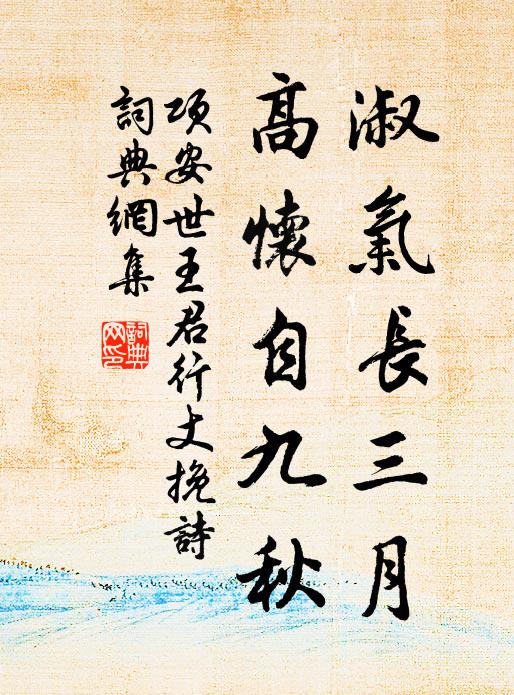 淑氣長三月
高懷自九秋
項安世王君行丈挽詩
詞典網集
詞典
网印